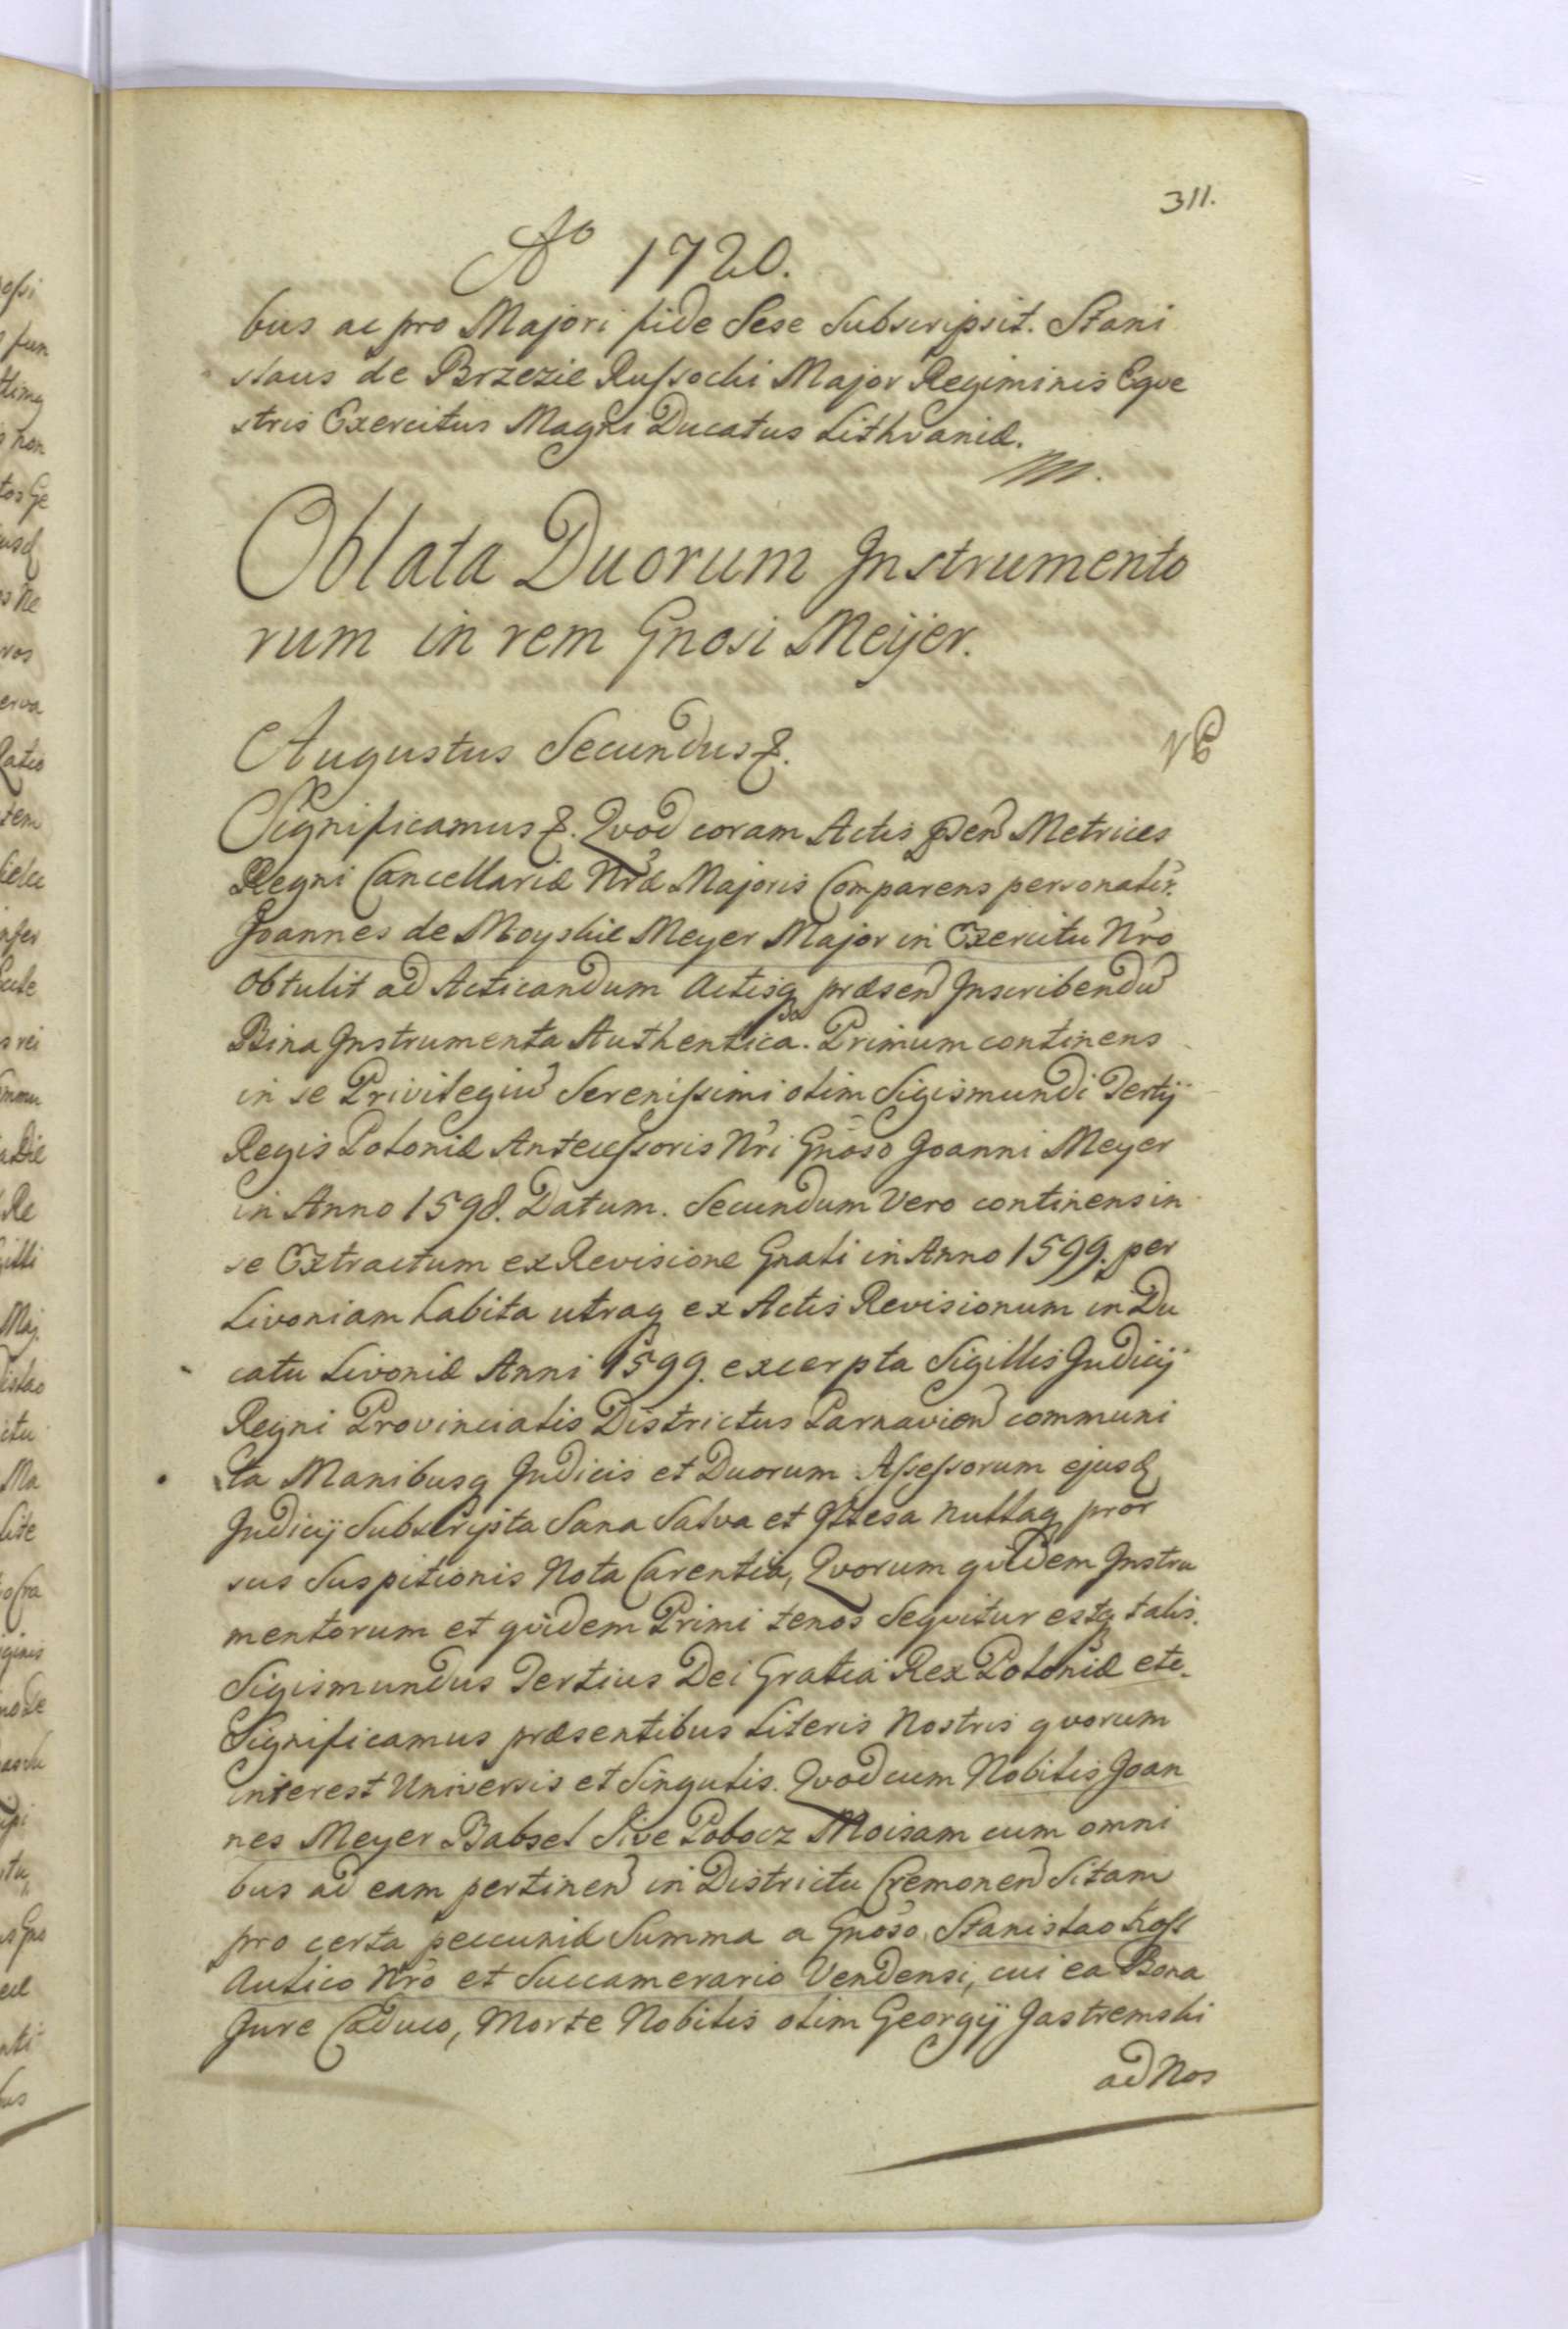 311.
Aº 1720.
bus ac pro Majori fide Sese Subscripsit. Stani
slaus de Brzezie Russocki Major Regiminis Eqve
stris Exercitus Magni Ducatus Lithvaniæ.
Oblata Duorum Instrumento
rum in rem Gnosi Meijer.
Augustus Secundus &.
Significamus &. Qvod coram Actis pñ Metrices
Regni Cancellariæ Nræ Majoris Comparens personalir.
Joannes de Moyskie Meyer Major in Exercitu Nro
obtulit ad Acticandum Actisq præsen Inscribendũ
Bina Instrumenta Authentica. Primum continens
in se Privilegiũ Serenissimi olim Sigismundi Tertij
Regis Poloniæ Antecessoris Nri Gnoso Joanni Meyer
in Anno 1598. Datum. Secundum Vero continens in
se Extractum ex Revisione Gnali in Anno 1599. per
Livoniam habita utraq ex Actis Revisionum in Du
catu Livoniæ Anni 1599. excerpta Sigillis Judicij
Regni Provincialis Districtus Parnavien communi
ta Manibusq Judicis et Duorum Assessorum ejusd
Judicij Subscripta Sana Salva et Illesa nullaq pror
sus Suspitionis Nota Carentia, Qvorum qvidem Instru
mentorum et qvidem Primi tenor Seqvitur estq talis.
Sigismundus Tertius Dei Gratia Rex Poloniæ etc.
Significamus præsentibus Literis Nostris qvorum
interest Universis et Singulis. Qvod cum Nobilis Joan
nes Meyer Babsel Sive Pobocz Moisam cum omni
bus ad eam pertinen in Districtu Cremonen Sitam
pro certa peccuniæ Summa a Gnoso Stanislao
Aulico Nro et Succamerario Vendensi, cui ea Bona
Jure Caduco, Morte Nobilis olim Georgij Jastremski
ad Nos